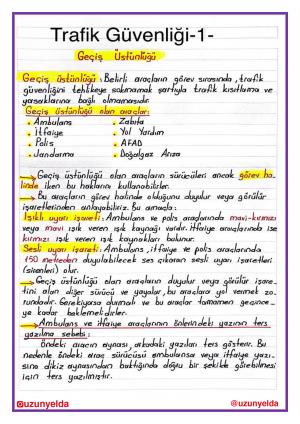 Trafik Güvenliği-1-
Geçiş Üstünlüğü
Geçiş üstünlüğü: Belirli araçların görev sırasında, trafik
güvenliğini tehlikeye sokmamak şartıyla trafik kısıtlama ve
yasaklarına bağlı olmamasıdır.
Geçiş üstünlüğü olan araçlar:
• Ambulans • Zabıta
• İtfaiye • Yol Yardım
• Polis • AFAD
• Jandarma • Doğalgaz Arıza
→ Geçiş üstünlüğü olan araçların sürücüleri ancak görev ha-
linde iken bu haklarını kullanabilirler.
→ Bu araçların görev halinde olduğunu duyulur veya görülür
işaretlerinden anlayabiliriz. Bu amaçla:
Işıklı uyarı işareti: Ambulans ve polis araçlarında mavi-kırmızı
veya mavi ışık veren ışık kaynağı vardır. İtfaiye araçlarında ise
kırmızı ışık veren ışık kaynakları bulunur.
Sesli uyarı işareti: Ambulans ve polis araçlarında
150 metreden duyulabilecek ses çıkaran sesli uyarı işaretleri
(sirenleri) olur.
→ Geçiş üstünlüğü olan araçların duyulur veya görülür işare-
tini alan diğer sürücü ve yayalar, bu araçlara yol vermek zo-
rundadır. Gerekiyorsa durmalı ve bu araçlar tamamen geçince-
ye kadar beklemelidirler.
→ Ambulans ve itfaiye araçlarının önlerindeki yazının ters
yazılma sebebi:
Öndeki aracın aynası, arkadaki yazıları ters gösterir. Bu
nedenle öndeki araç sürücüsü ambulansa veya itfaiye yazı-
sına dikiz aynasından baktığında doğru bir şekilde görebilmesi
için ters yazılmıştır.
@uzunyelda @uzunyelda